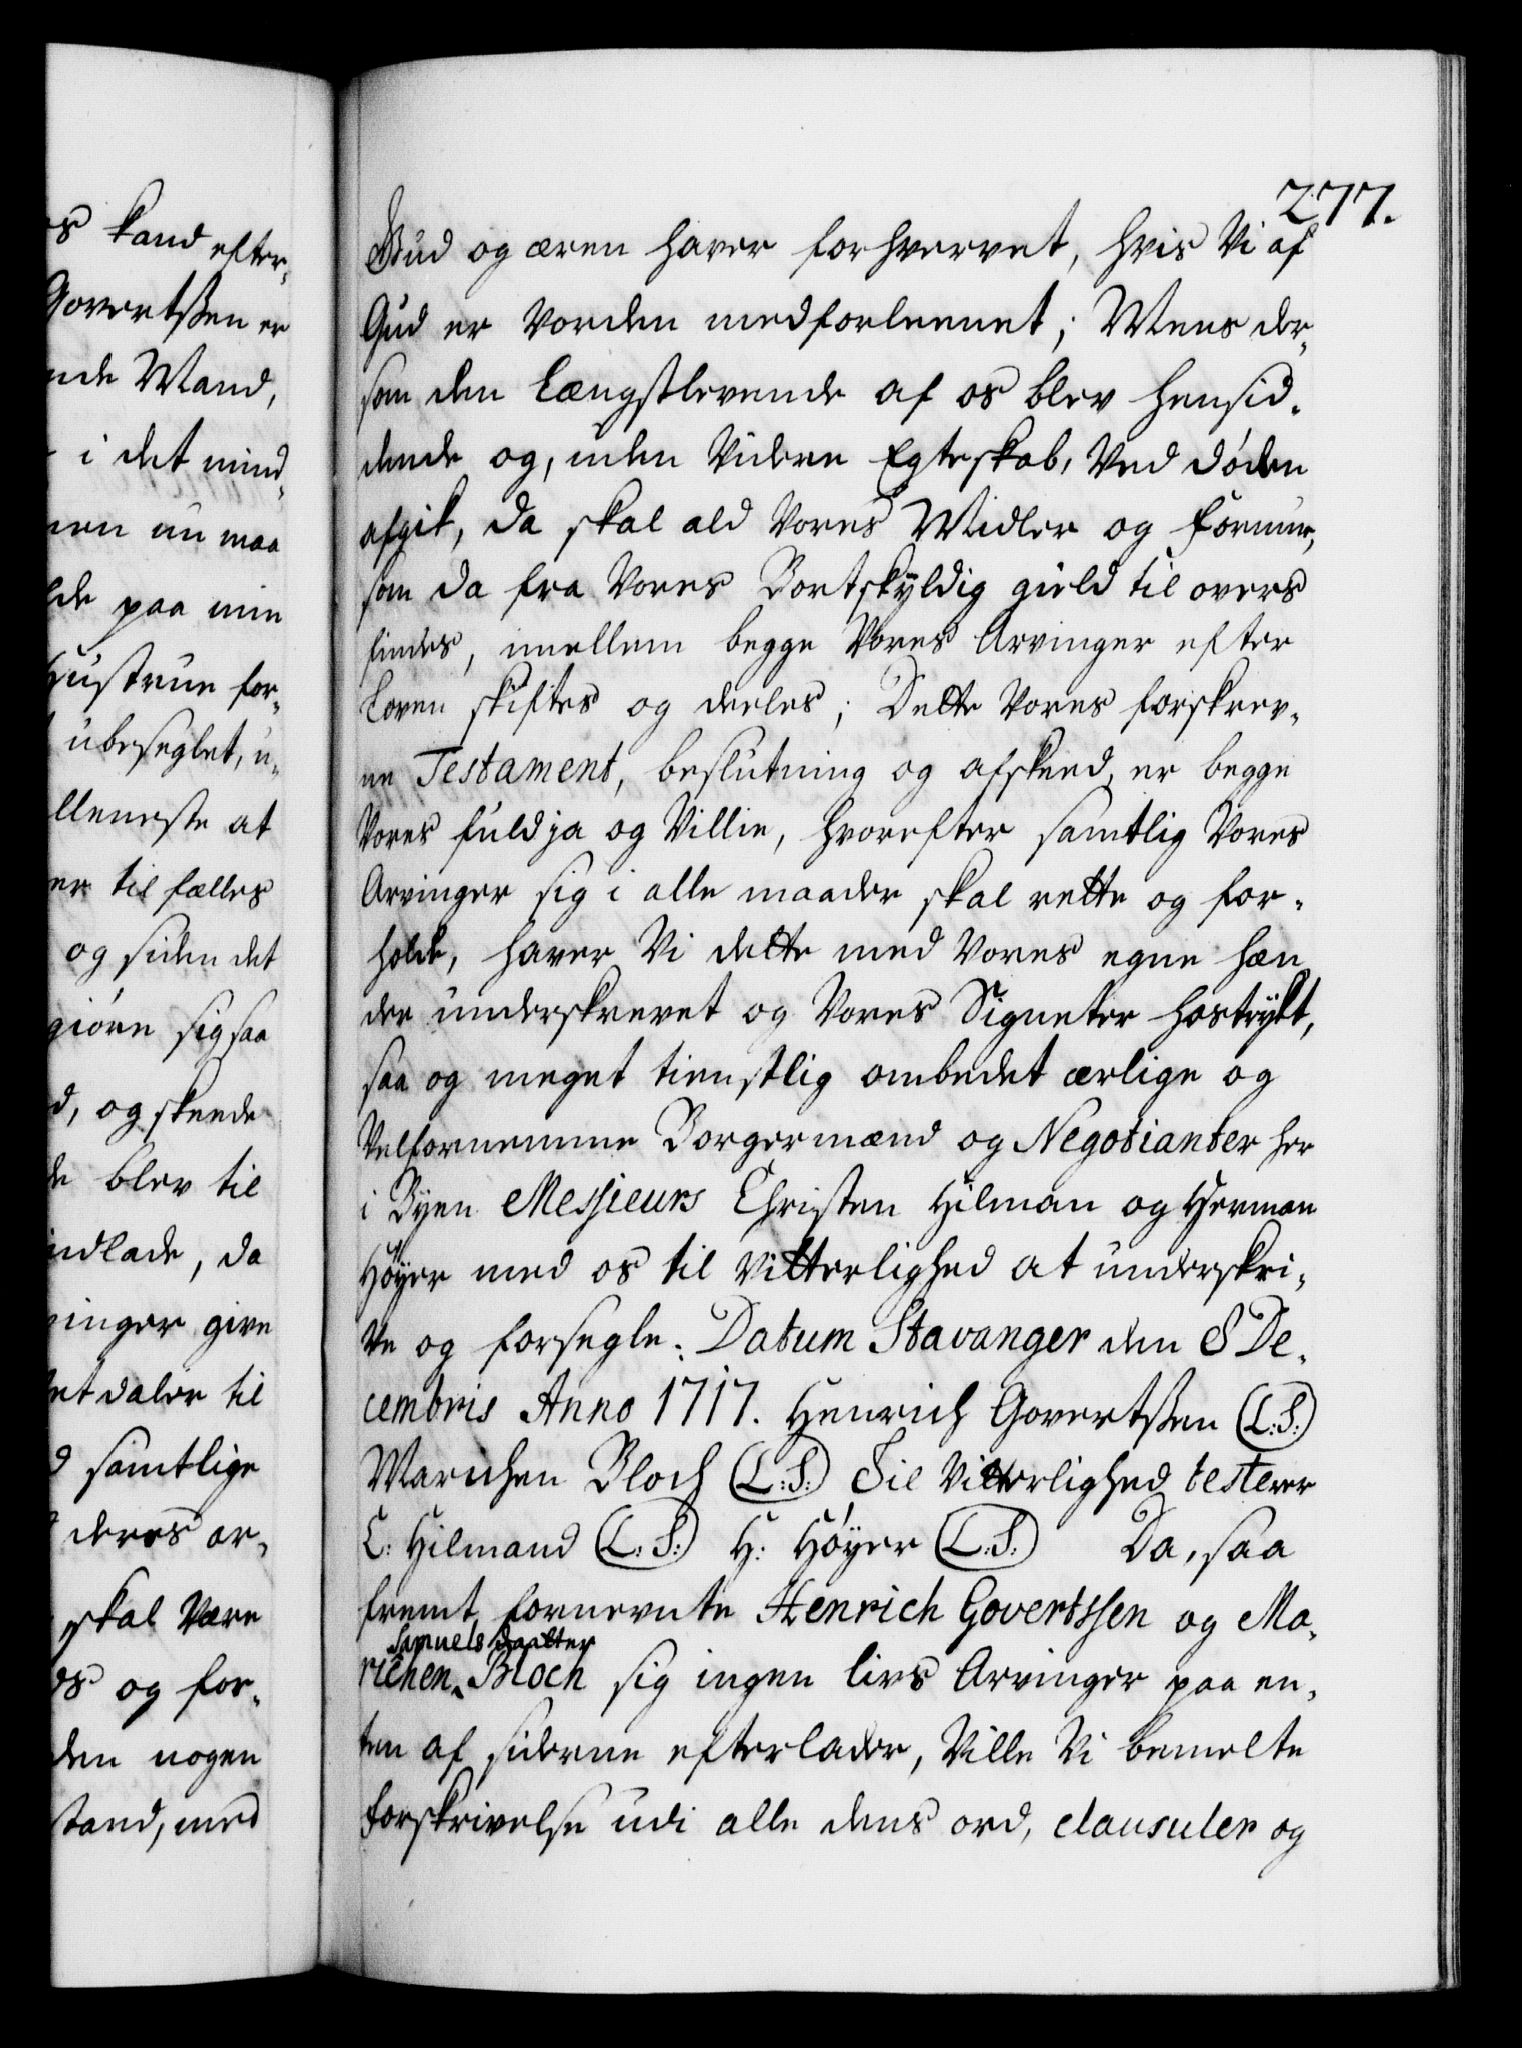 s kand efter-
Govertssen er
nde Mand,
i det mind-
men nu maa
lde paa min
Hustrue for-
ubeseglet, u-
lleneste at
er til fælles
og siden det
giøre sig saa
d, og skeede
de blev til
indlade, da
vinger give
het daler til
d samtlige
deres ar-
skal være
ds og for-
den nogen
stand, med
277.
Gud og æren haver forhvervet, hvis Vi af
Gud er vorden medforleenet; Mens der-
som den Længstlevende af os blev hensid-
dende og, uden Videre Egteskab, Ved døden
afgik, da skal ald Vores Midler og Formue,
som da fra Vores Bortskyldig gield til overs
findes, imellem begge Vores Arvinger efter
Loven skiftes og deeles; Dette Vores forskrev-
ne Testament, beslutning og afskeed, er begge
Vores fuld ja og Villie, hvorefter samtlig Vores
Arvinger sig i alle maader skal rette og for-
holde, haver Vi dette med Vores egne hæn
der underskrevet og Vores Signeter hostrykt,
saa og meget tienstlig ombedet ærlige og
Velfornemme Borgermænd og Negotianter her
i Byen Messieurs Christen Hilman og Herman
Høyer med os til Vitterlighed at underskri-
ve og forsegle. Datum Stavanger den 8 De-
cembris Anno 1717. Henrich Govertssen (L:S:)
Marichen Bloch (L:S:) Til Vitterlighed testerer
C: Hilmand (L:S:) H: Høyer (L:S:) Da, saa
fremt fornevnte Henrich Govertssen og Ma-
Samuels daatter
richen Bloch sig ingen livs Arvinger paa en-
ten af siderne efterlader, Ville Vi bemelte
Forskrivelse udi alle dens ord, clausuler og